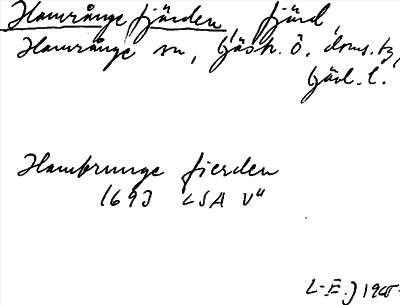 Hamrångefjärden, fjärd,
Hamrånge sn, Gästr. Ö. doms. tg,
Gävl. l.
Hambrunge fierden
1693 LSA V"
L-E. J 1965